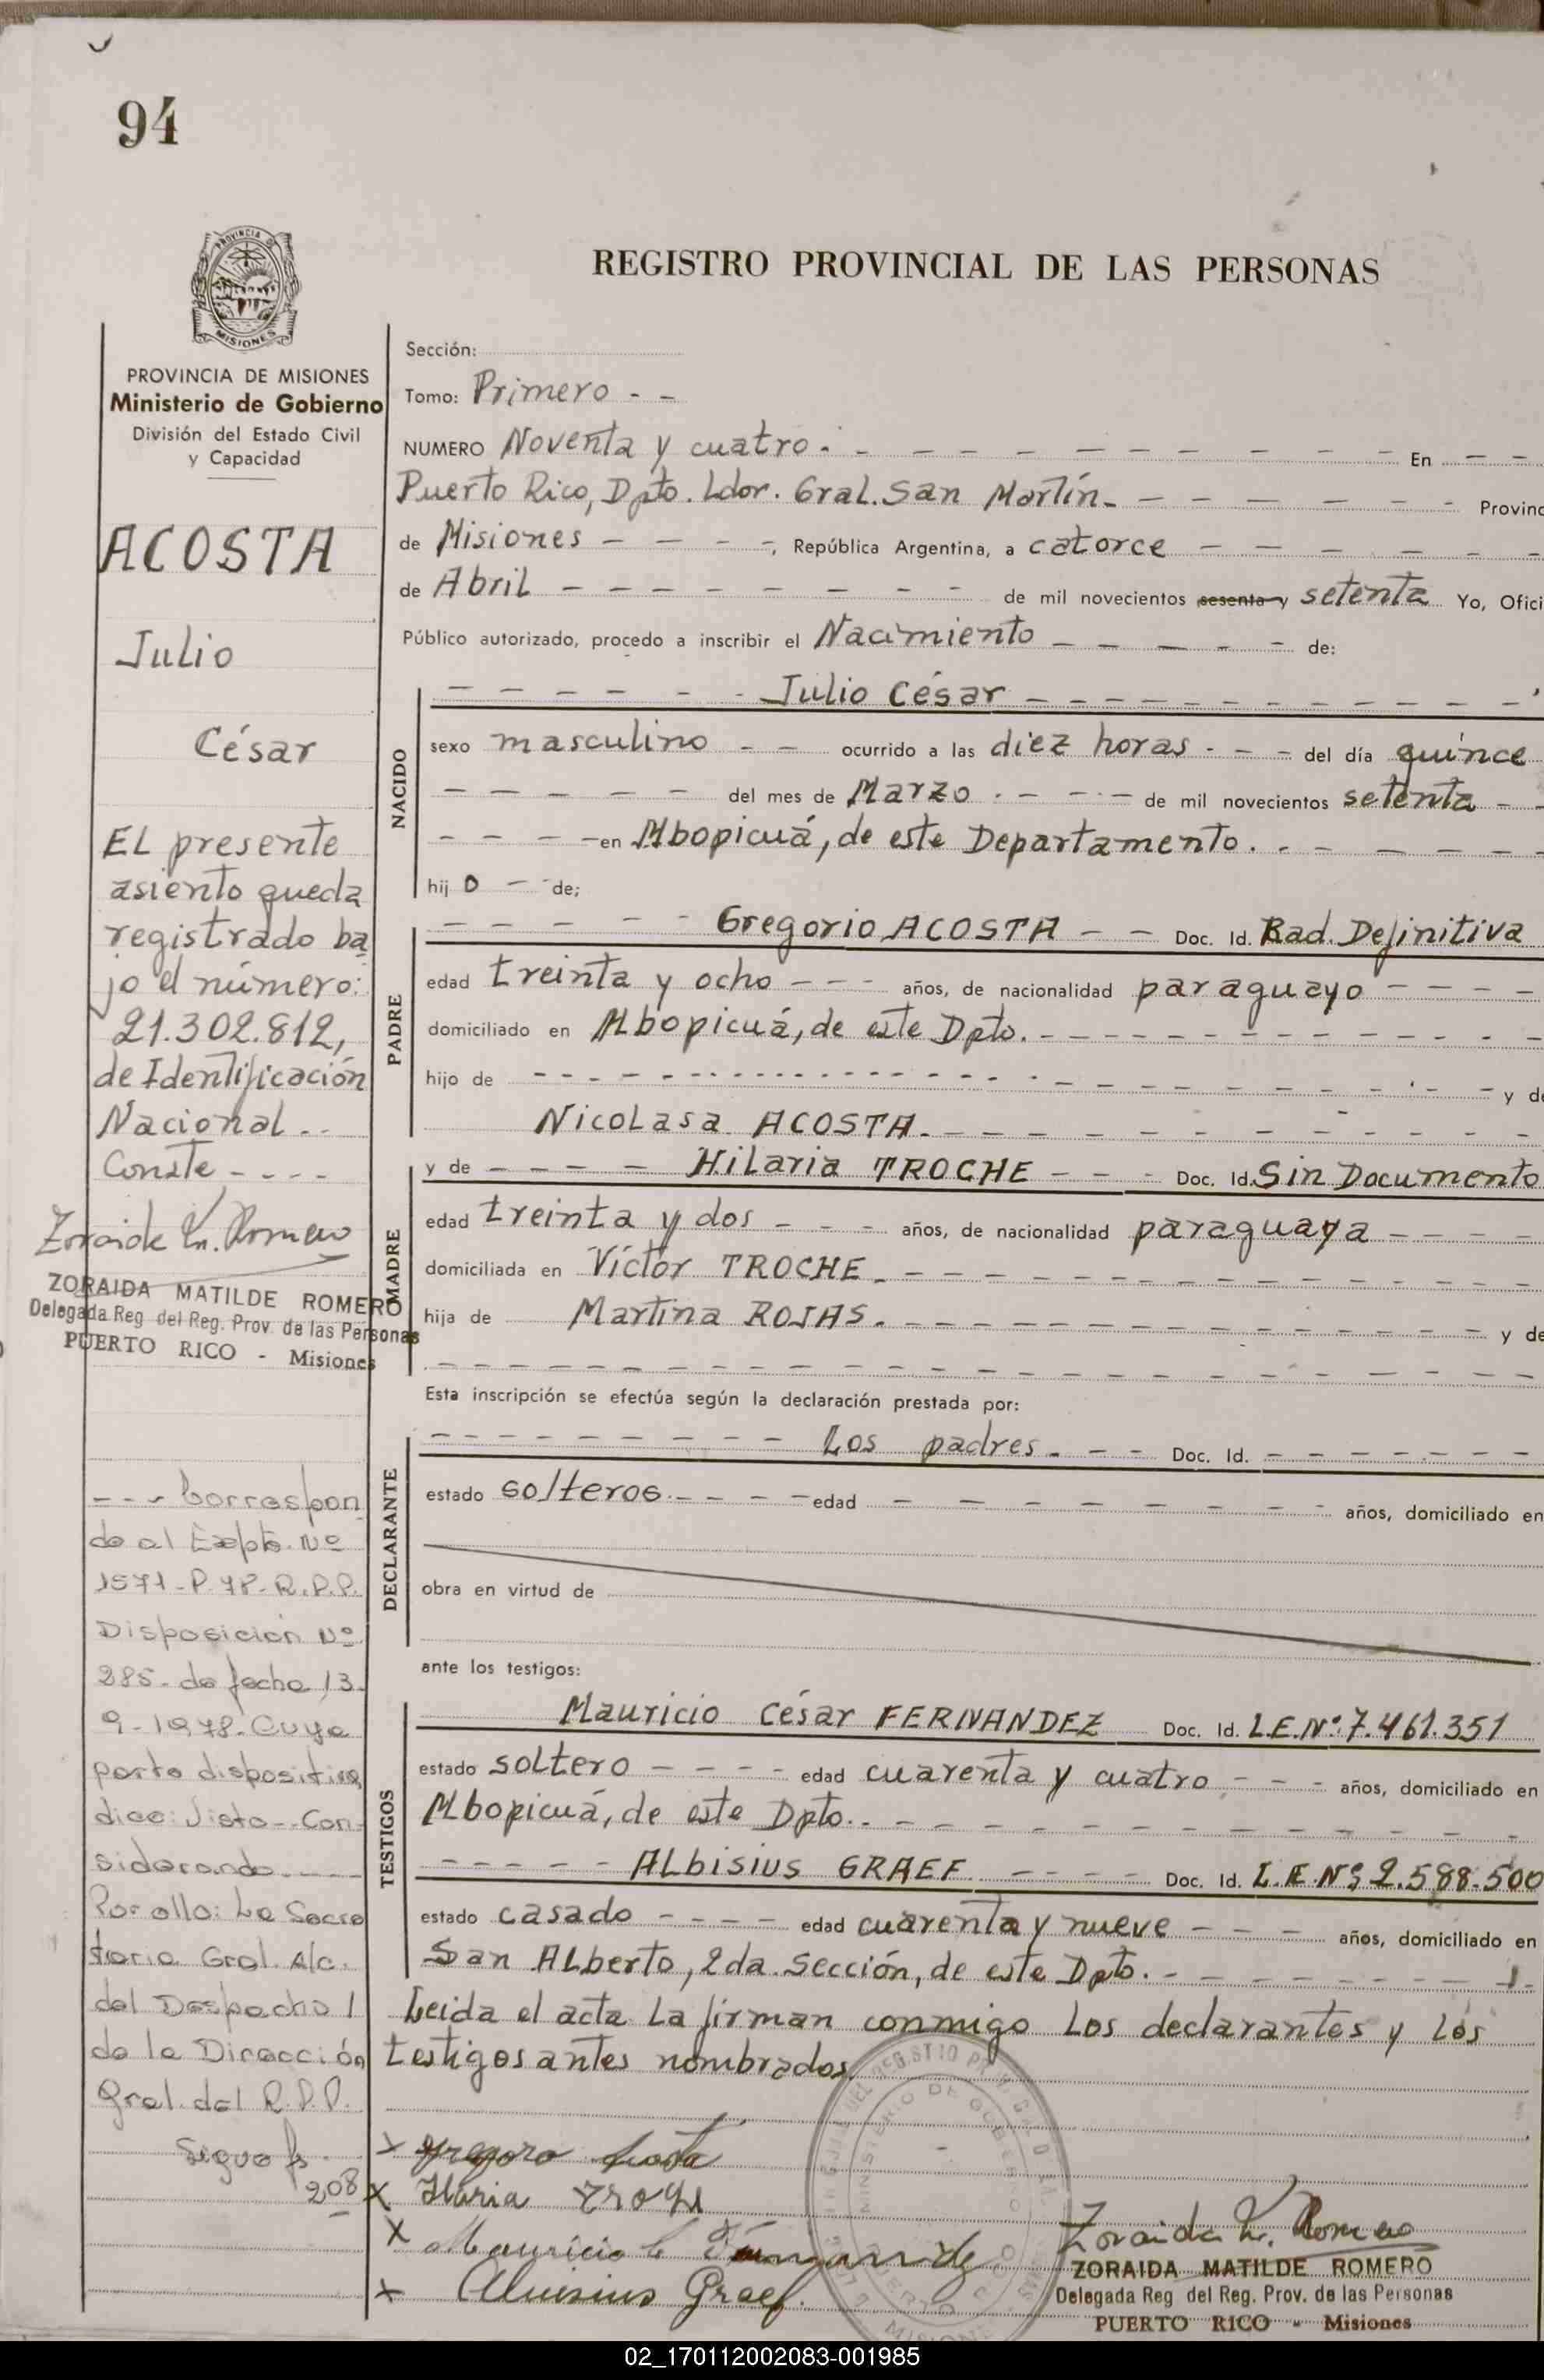 94
REGISTRO PROVINCIAL DE LAS PERSONAS
PROVINCIA DE
MISIONES
PROVINCIA DE MISIONES
Ministerio de Gobierno
División del Estado Civil
y Capacidad
ACOSTA
Julio
César
EL presente
asiento queda
registrado ba
jo el número:
21.302.812,
de Identificación
Nacional..
Conste - - - -
Zoraida M. Romero
ZORAIDA MATILDE ROMERO
Delegada Reg del Reg. Prov. de las Personas
PUERTO RICO - Misiones
- - - Correspon
de al Expte. Nº
1571-P-78-R.P.P.
Disposición Nº
285- de fecha 13-
9-1978- Cuya
parte dispositiva
dice: Visto - - Con-
siderando - - -
Por ello: La Secre
taria Gral. A/c.
del Despacho
de la Dirección
Gral. del R.P.P.
Sigue f.
208
Sección:
Tomo: Primero - -
NUMERO Noventa y cuatro.- - - - - - - - - - - En - - -
Puerto Rico, Dpto. Ldor. Gral. San Martín. - - - - - - - Provinc
de Misiones - - - - -, República Argentina, a catorce - - - - - - -
de Abril - - - - - - - - de mil novecientos sesenta y setenta Yo, Ofici
Público autorizado, procedo a inscribir el Nacimiento - - - - - de:
NACIDO
- - - - - - - Julio César - - - - - - - - - - -
sexo masculino - - ocurrido a las diez horas - - - del día quince
- - - - - - del mes de Marzo . - - - - de mil novecientos setenta - -
- - - - en Mbopicuá, de este Departamento. - - - - - - -
hij o - - de;
PADRE
- - - - - - Gregorio ACOSTA - - Doc. Id. Rad. Definitiva
edad treinta y ocho - - - años, de nacionalidad paraguayo - - - -
domiciliado en Mbopicuá, de este Dpto. - - - - - - - - - - -
hijo de - - - - - - - - - - - - - - - - - - - - y de
Nicolasa ACOSTA. - - - - - - - - - - - -
MADRE
y de - - - - Hilaria TROCHE - - - Doc. Id. Sin Documento
edad treinta y dos - - - años, de nacionalidad paraguaya - - - -
domiciliada en Víctor TROCHE. - - - - - - - - - - - - -
hija de Martina ROJAS. - - - - - - - - - - - - - y de
- - - - - - - - - - - - - - - - - - - - - -
Esta inscripción se efectúa según la declaración prestada por:
DECLARANTE
- - - - - - - - - Los padres. - - Doc. Id. - - - - - -
estado solteros. - - - - edad - - - - - - - - - años, domiciliado en
obra en virtud de
ante los testigos:
TESTIGOS
Mauricio César FERNANDEZ Doc. Id. L.E.Nº: 7.461.351
estado soltero - - - - edad cuarenta y cuatro - - - años, domiciliado en
Mbopicuá, de este Dpto. - - - - - - - - - - - - - -
- - - - - ALbisius GRAEF - - - - Doc. Id. L.E.Nº; 2.588.500
estado casado - - - - edad cuarenta y nueve - - - años, domiciliado en
San ALberto, 2da. Sección, de este Dpto. - - - - - - - - -
Leida el acta La firman conmigo Los declarantes y Los
testigos antes nombrados
MINISTERIO DE GOBIERNO
PUERTO RICO
MISIONES
x Gregoro Acosta
x Ilaria
x Mauricio C
x Aluisius Graef.
Zoraida M. Romero
ZORAIDA MATILDE ROMERO
Delegada Reg del Reg. Prov. de las Personas
PUERTO RICO - Misiones
02_170112002083-001985